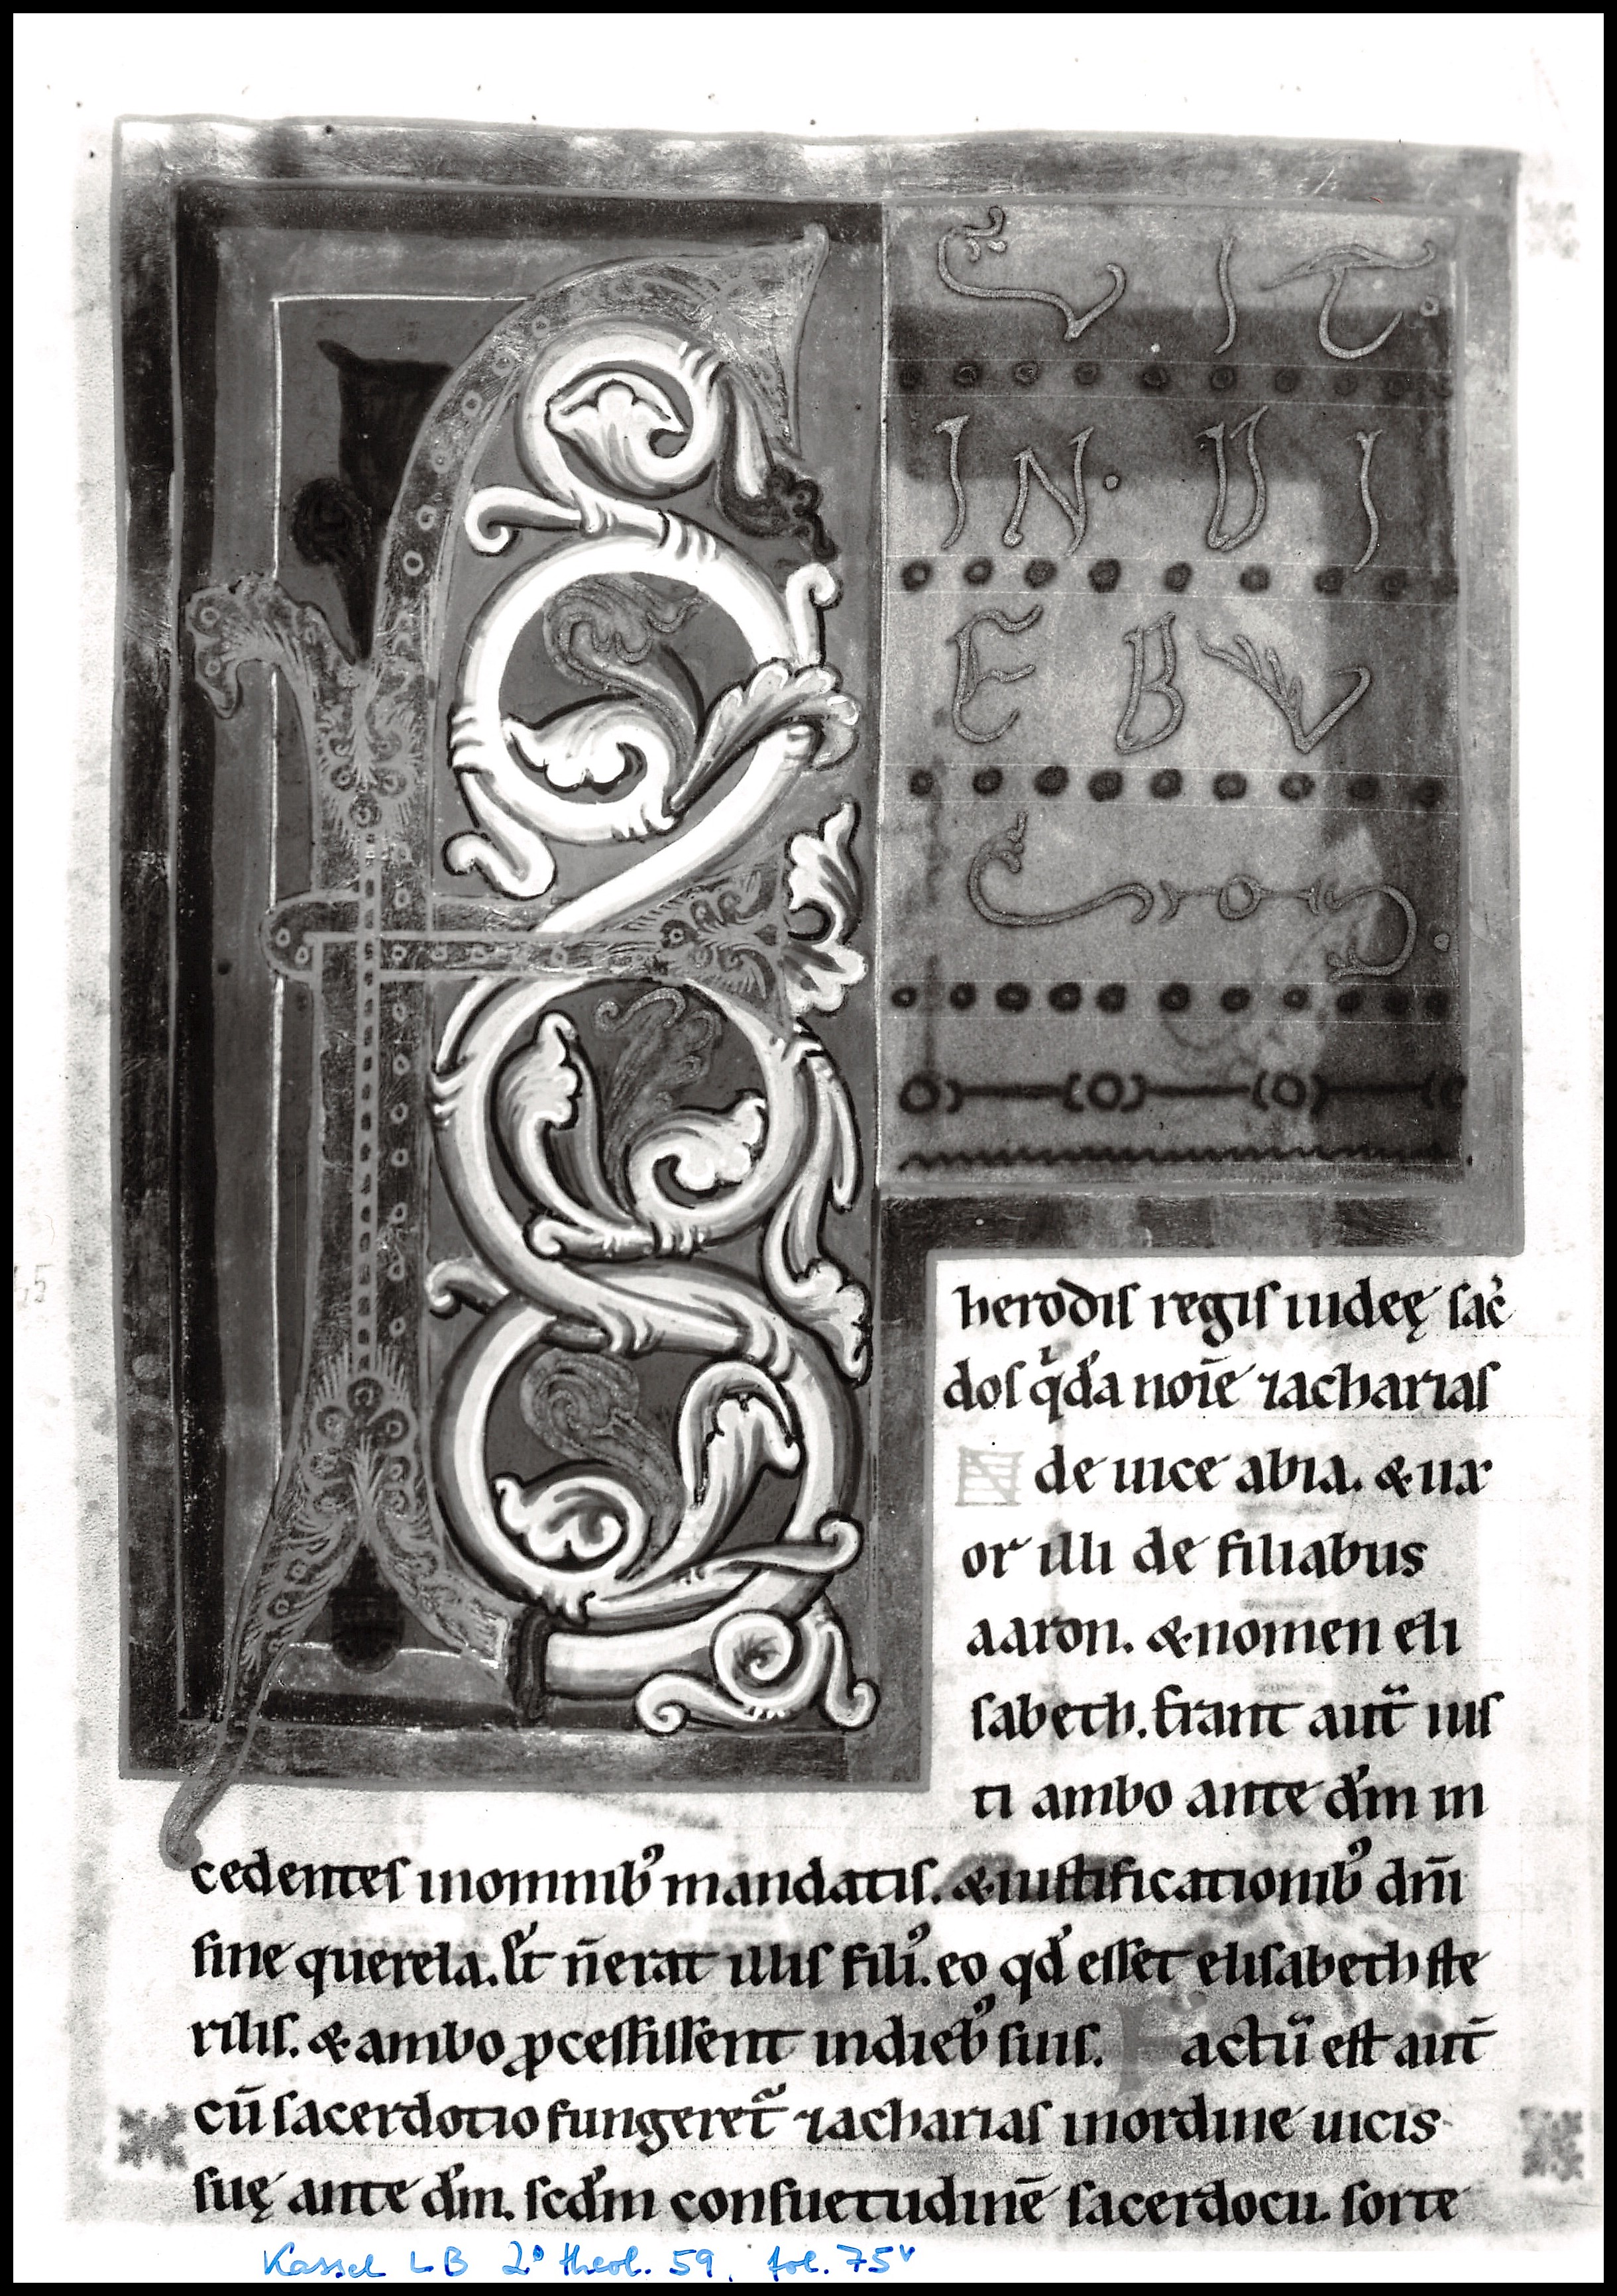 F
UIT
IN · DI
EBUS
herodis regis iudeę sac̓
dos qͥda noīe zacharias
de uice abia. & ux
or illi de filiabus
aaron. & nomen eli
sabeth. Erant aut̄ ius
ti ambo ante dm̄ in
cedentes inomnibꝰ mandatis. & iustificationibꝰ dn̄i
sine querela. Et n̄ erat illis filiꝰ. eo qd̓ esset elisabeth ste
rilis. & ambo ꝓcessissent indiebꝰ suis. Factū est aut̄
cū sacerdotio fungeret᷑ zacharias inordine uicis
suę ante dm̄. scd̓m consuetudinē sacerdocii. sorte
Kassel LB 2° theol. 59, fol. 75ᵛ